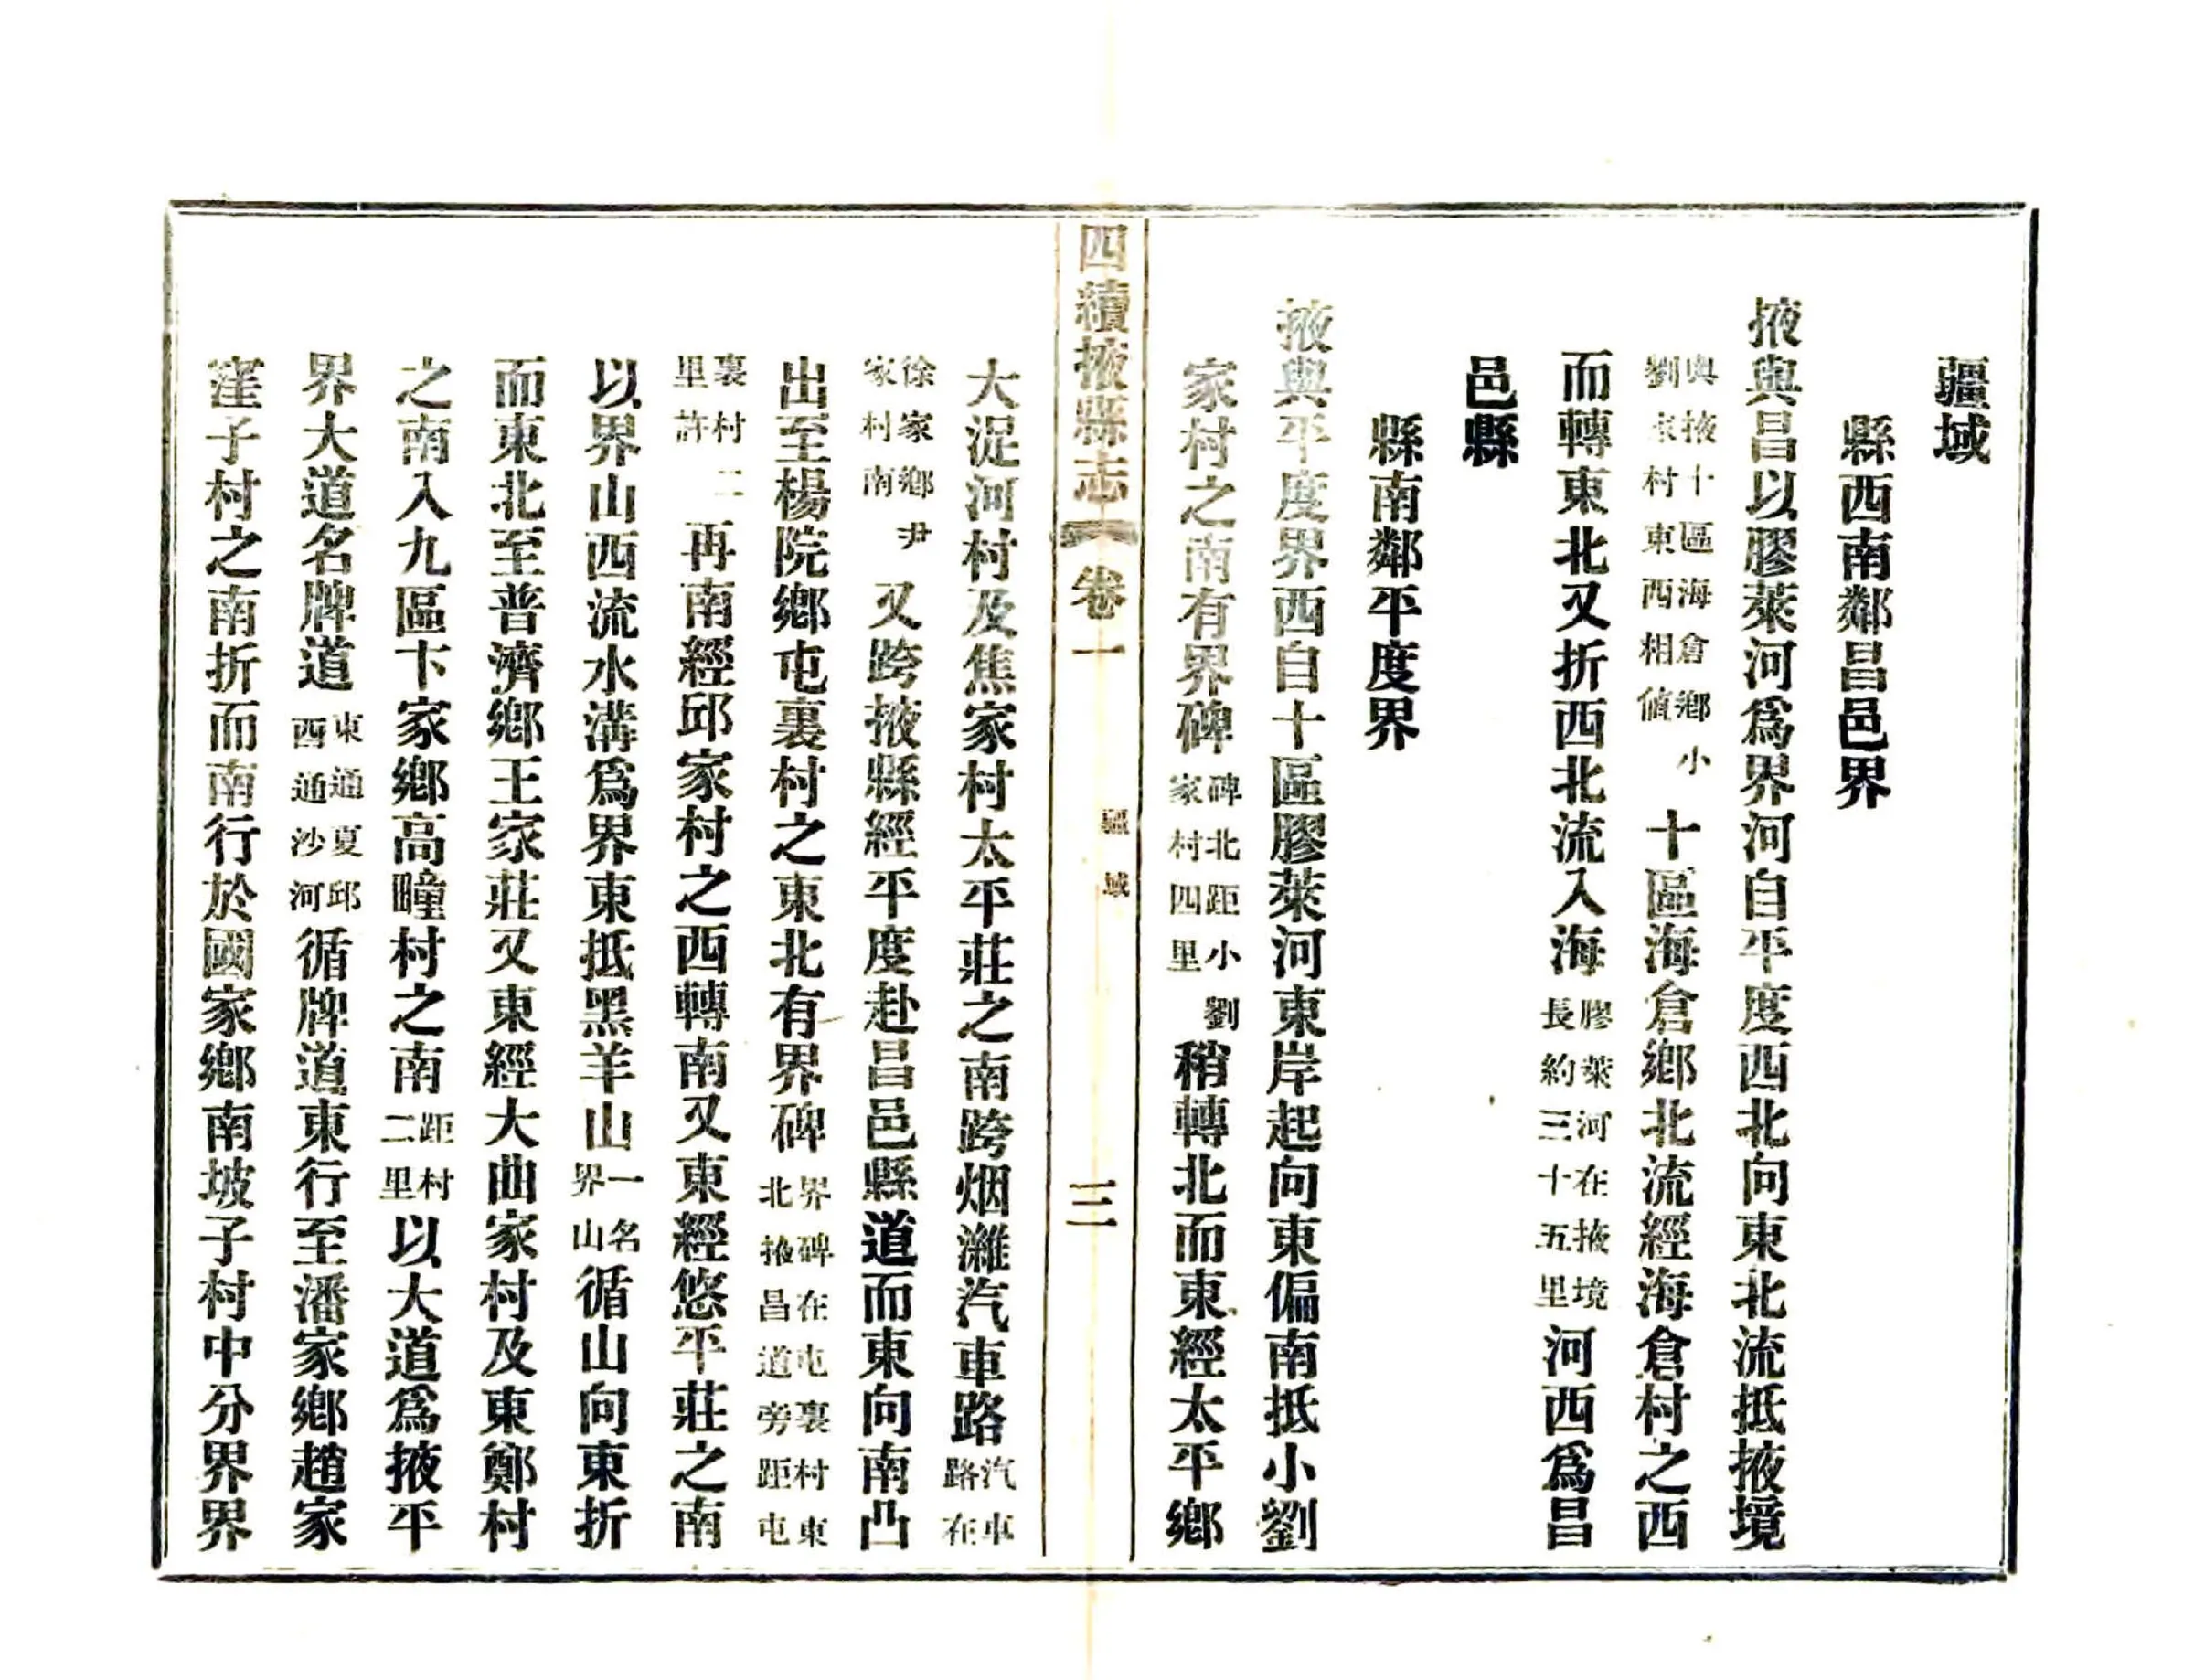 疆域
縣西南鄰昌邑界
掖與昌以膠萊河爲界河自平度西北向東北流抵掖境
與掖十區海倉鄉小劉家村東西相値十區海倉鄉北流經海倉村之西
而轉東北又折西北流入海膠萊河在掖境長約三十五里河西爲昌
邑縣
縣南鄰平度界
掖與平度界西自十區膠萊河東岸起向東偏南抵小劉
家村之南有界碑碑北距小劉家村四里稍轉北而東經太平鄉
四續掖縣志 卷一 疆域 三
大浞河村及焦家村太平莊之南跨烟濰汽車路汽車路在
徐家鄉尹家村南又跨掖縣經平度赴昌邑縣道而東向南凸
出至楊院鄉屯裏村之東北有界碑界碑在屯裏村東北掖昌道旁距屯
裏村二里許再南經邱家村之西轉南又東經悠平莊之南
以界山西流水溝爲界東抵黑羊山一名界山循山向東折
而東北至普濟鄉王家莊又東經大曲家村及東鄭村
之南入九區卞家鄉高疃村之南距村二里以大道爲掖平
界大道名牌道東通夏邱西通沙河循牌道東行至潘家鄉趙家
窪子村之南折而南行於國家鄉南坡子村中分界界